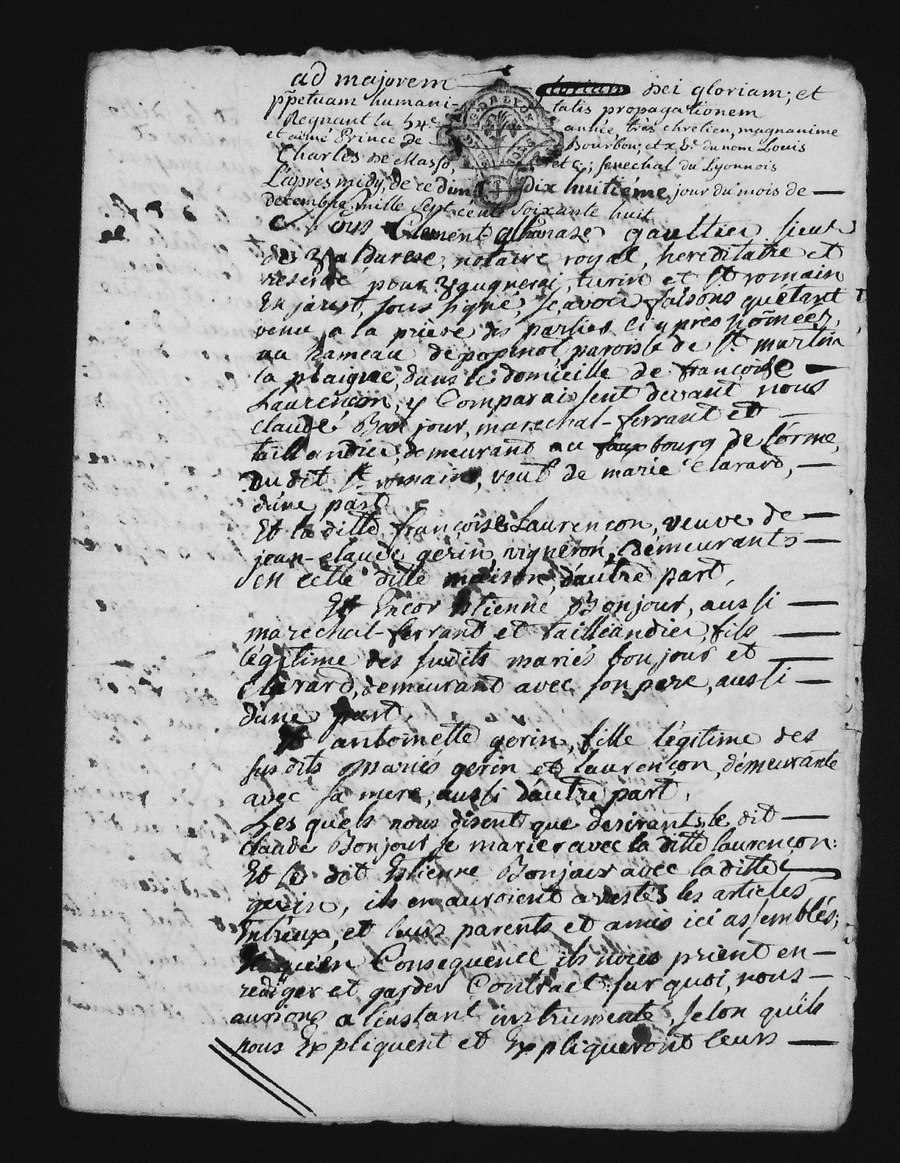 ad majorem Dei gloriam; et
ppetuam humani- tatis propagationem
Regnant la 54e année, très chretien, magnanime
et aimé Prince de Bourbon, et xve du nom Louis
Charles de Masso, etc; senechal du Lyonnois
L'après midy, de ce dim dix huitiéme jour du mois de
decembre mille sept cents soixante huit
Nous Clement athanase gaultier sieur
des notaire royal, hereditaire et
réservé pour turin et St romain
En jarest, sous signé, scavoir faisons qu'étant
venu, a la priere des parties ci après nomées,
au hameau de popenot, paroisse de St martin
la plaigne, dans le domicille de francoise
Laurençon, y Comparaissent devant nous
claude Bonjour, marechal-ferrant et
taillandier, demeurant au faux bourg de l'orme,
Du dit St romain, veuf de marie Clarard,
d'une part
Et la ditte françoise Laurençon, veuve de
jean-claude gerin, vigneron, demeurants
en celle ditte maison, d'autre part,
Et Encor Estienne Bonjour, aussi
marechal-ferrant et taillandier, fils
légitime des susdits mariés bonjour et
Clarard, demeurant avec son pere, aussi
d'une part.
Et antoinette gerin, fille légitime des
sus dits mariés gerin et laurençon, demeurante
avec sa mere, aussi d'autre part,
Les quels nous disent que desirants, le dit
claude Bonjour se marier avec la ditte laurençon:
Et le dit Estienne Bonjour avec la ditte
gerin, ils en auroient arrestés les articles
Entr'eux, et leurs parents et amis ici assemblés;
Et qu'en Consequence ils nous prient en
rediger et garder Contract: sur quoi, nous
aurions a l'instant instrumenté selon qu'ils
nous Expliquent et Expliqueront leurs